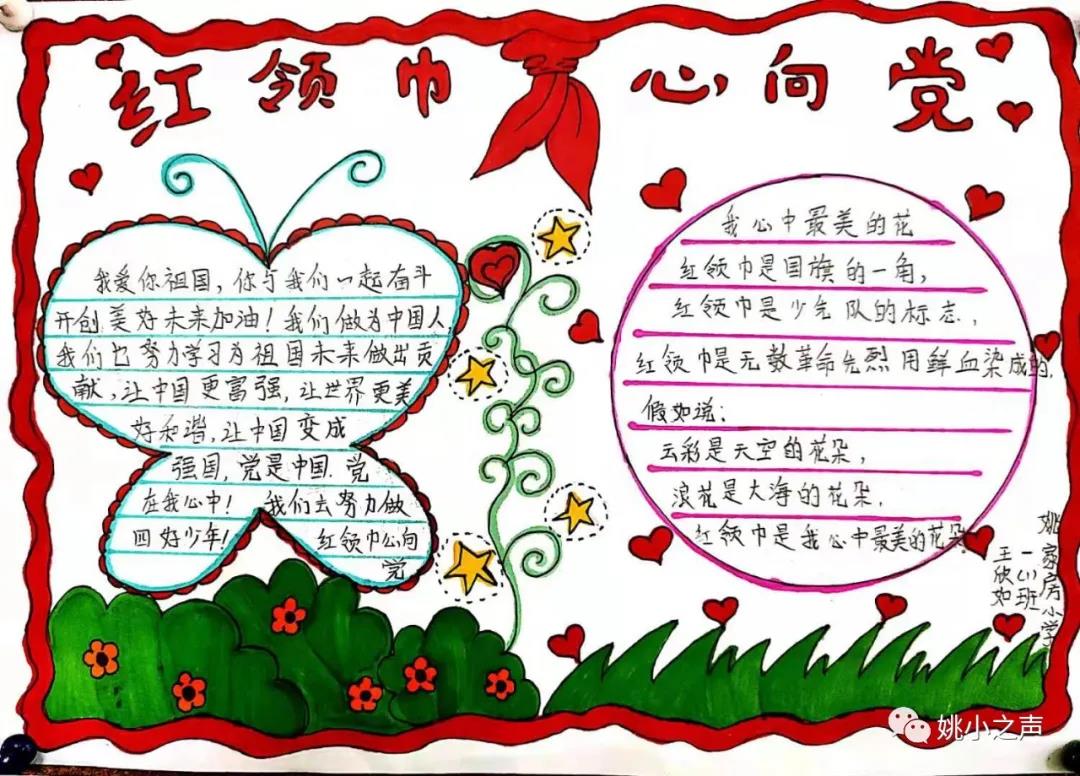 红领巾 心向党
我爱你祖国，你与我们一起奋斗
开创美好未来加油！我们做为中国人，
我们也努力学习为祖国未来做出贡
献，让中国更富强，让世界更美
好和谐，让中国变成
强国，党是中国.党
在我心中！ 我们去努力做
四好少年！ 红领巾心向
党
我心中最美的花
红领巾是国旗的一角，
红领巾是少先队的标志，
红领巾是无数革命先烈用鲜血染成的.
假如说：
云彩是天空的花朵，
浪花是大海的花朵.
红领巾是我心中最美的花朵.
姚家房小学
一(1)班
王欣如
姚小之声